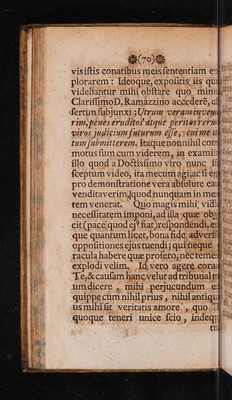 (70)
visistis conatibus meis sententiam ex-
plorarem: Ideoque, expositis iis quæ
videbantur mihi obstare quo minus
Clarissimo D. Ramazzino accederē,
sertim subjunxi; Utrum verum inven
rim, penes eruditos atque peritos rerum
viros judicium futurum esse, cui me
tum submitterem. Itaque nonnihil com-
motus sum cum viderem, in examine
illo quod a Doctissimo viro nunc
sceptum video, ita mecum agi, ac si
pro demonstratione vera absolute
venditaverim, quod nunquam in men-
tem venerat. Quo magis mihi vid
necessitatem imponi, ad illa quæ ob
cit (pace quod ejꝰ fiat) respondendi,
que quantum licet, bona fide adversus
oppositiones ejus tuendi; qui neque
racula habere quæ profero, nec temere
explodi velim. Id vero agere coram
Te, & causam hanc velut ad tribunal
um dicere, mihi perjucundum
quippe cum nihil prius, nihil antiqui-
us mihi sit veritatis amore, quo
quoque teneri unice scio, indeque